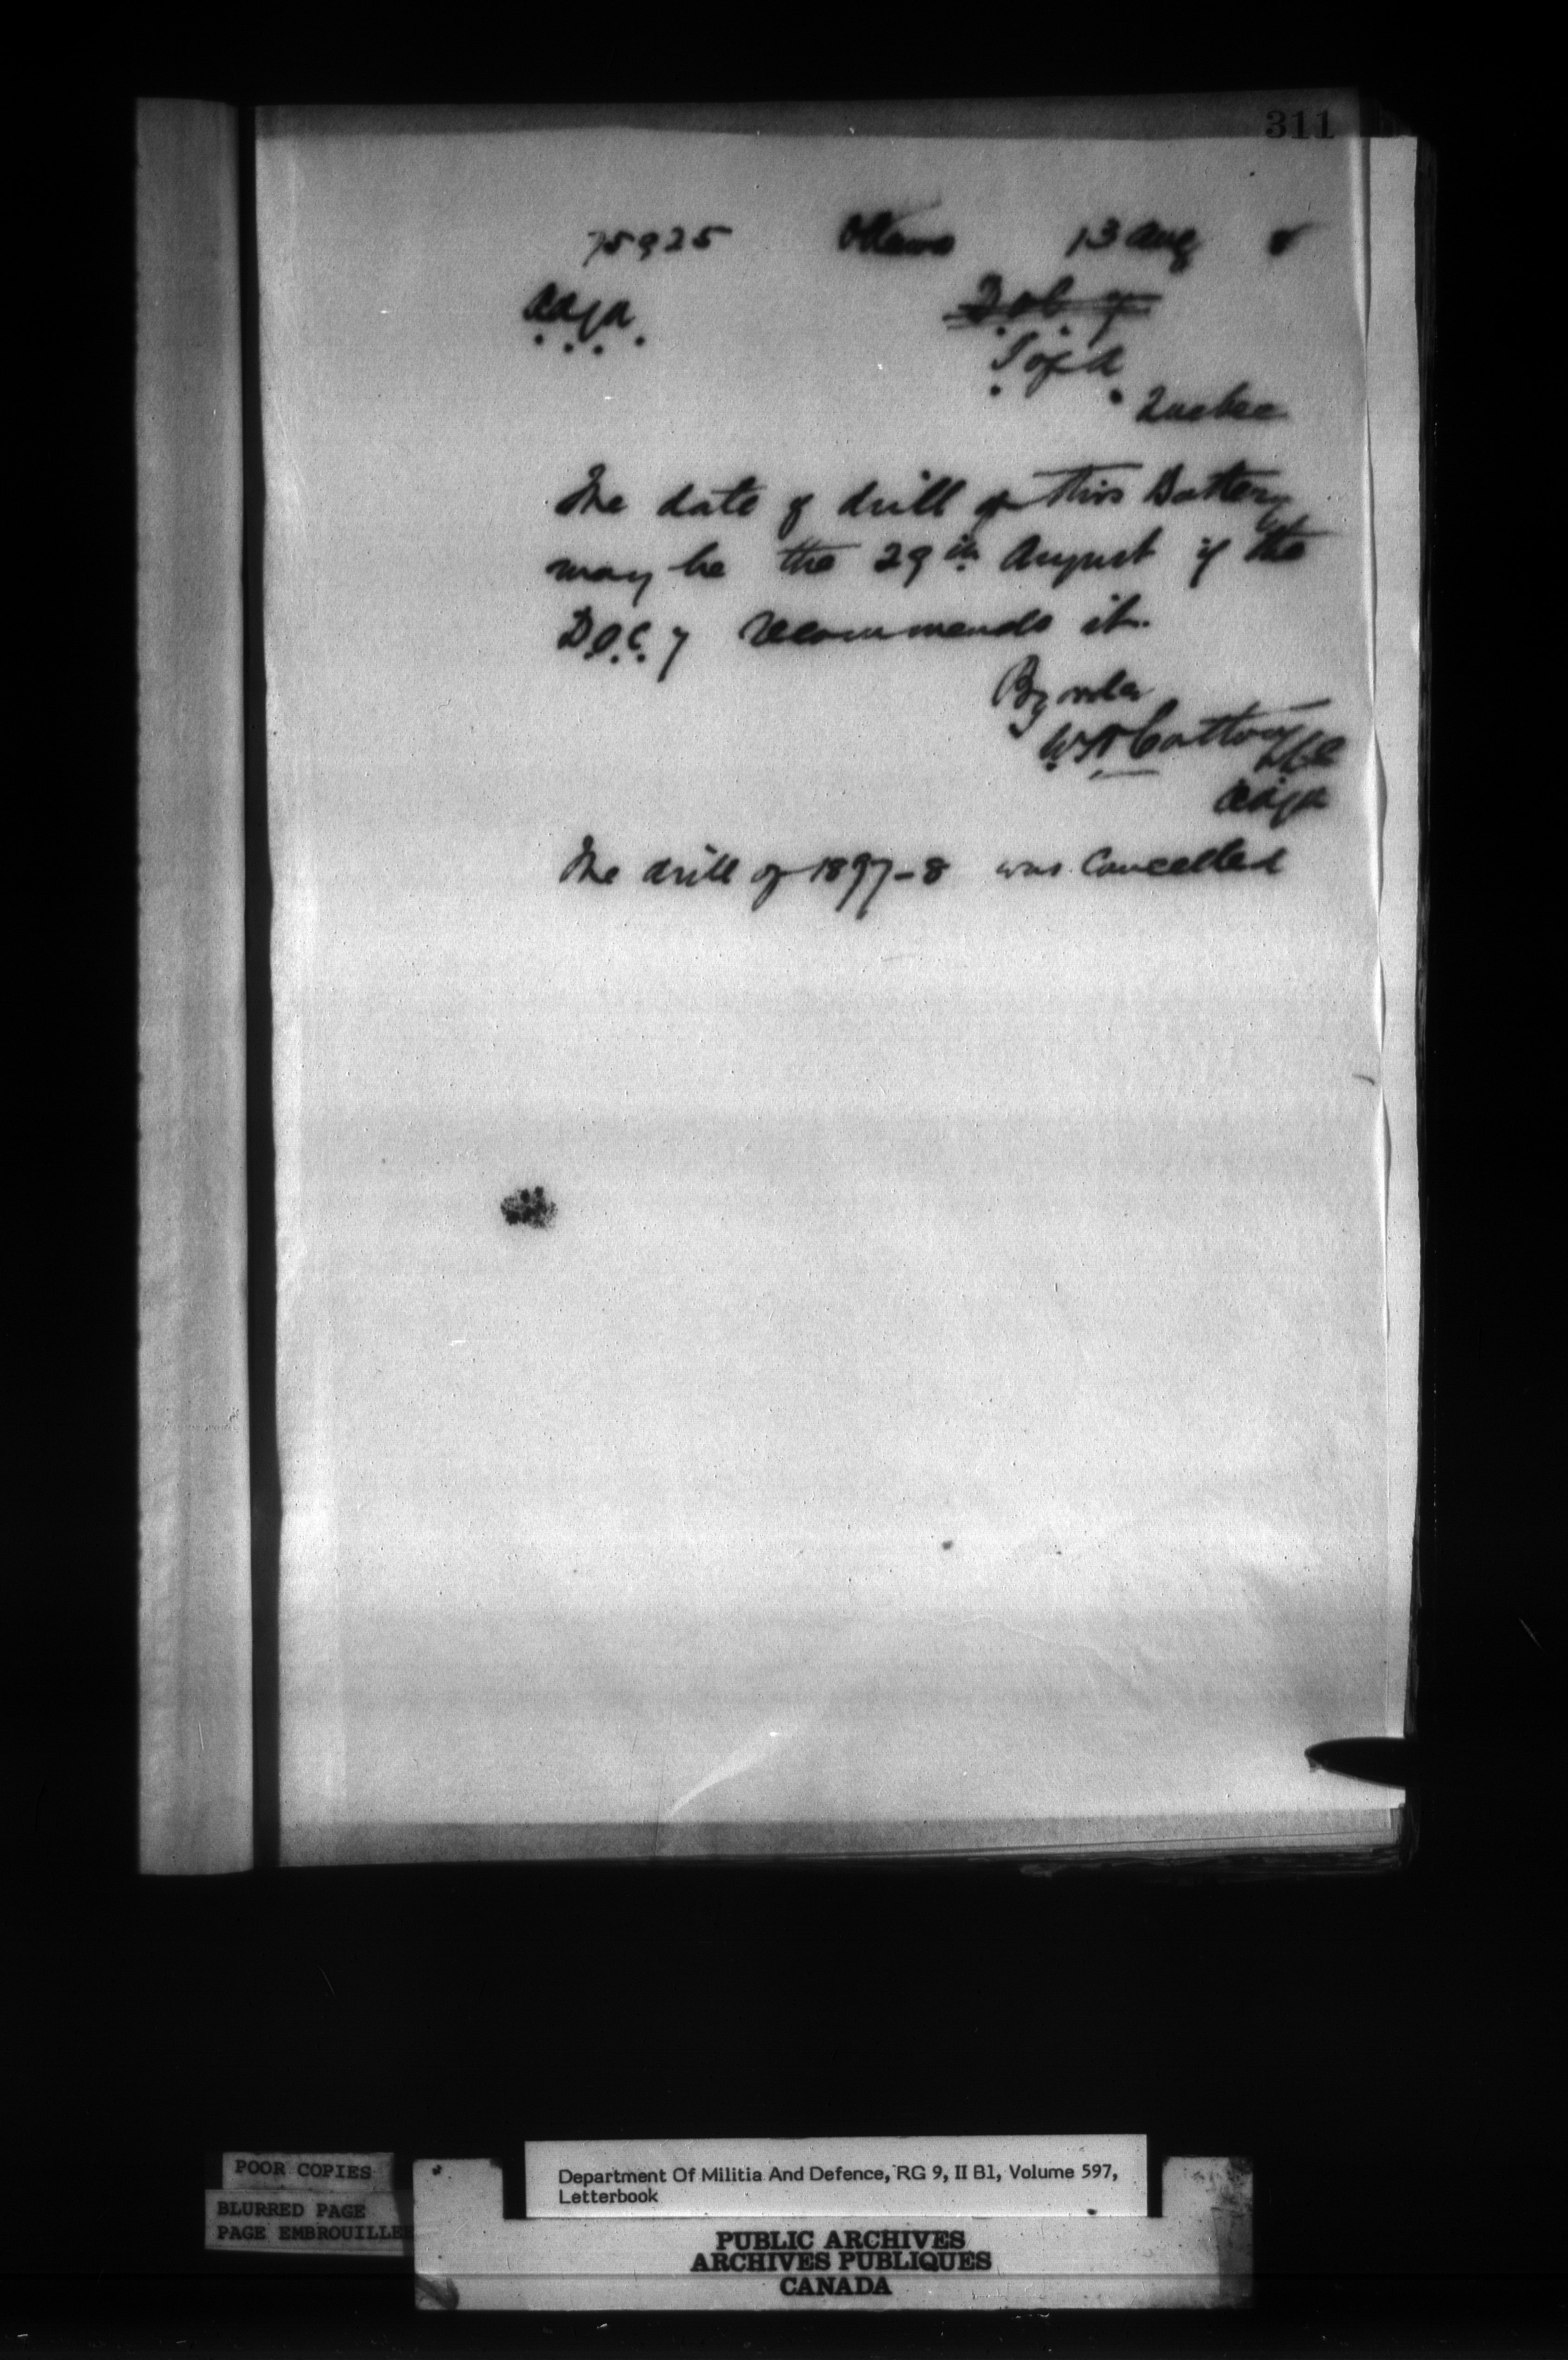 311
75925 Ottawa 13 Aug 8
A.A.G.A.
D.O.C. 7
I of A
Quebec
The date of drill of this Battery
may be the 29th August if the
D.O.C. 7 recommends it.
By order
W H Cotton
AAGA
The drill of 1897-8 was Cancelled
POOR COPIES
BLURRED PAGE
PAGE EMBROUILLEE
Department Of Militia And Defence, RG 9, II B1, Volume 597,
Letterbook
PUBLIC ARCHIVES
ARCHIVES PUBLIQUES
CANADA